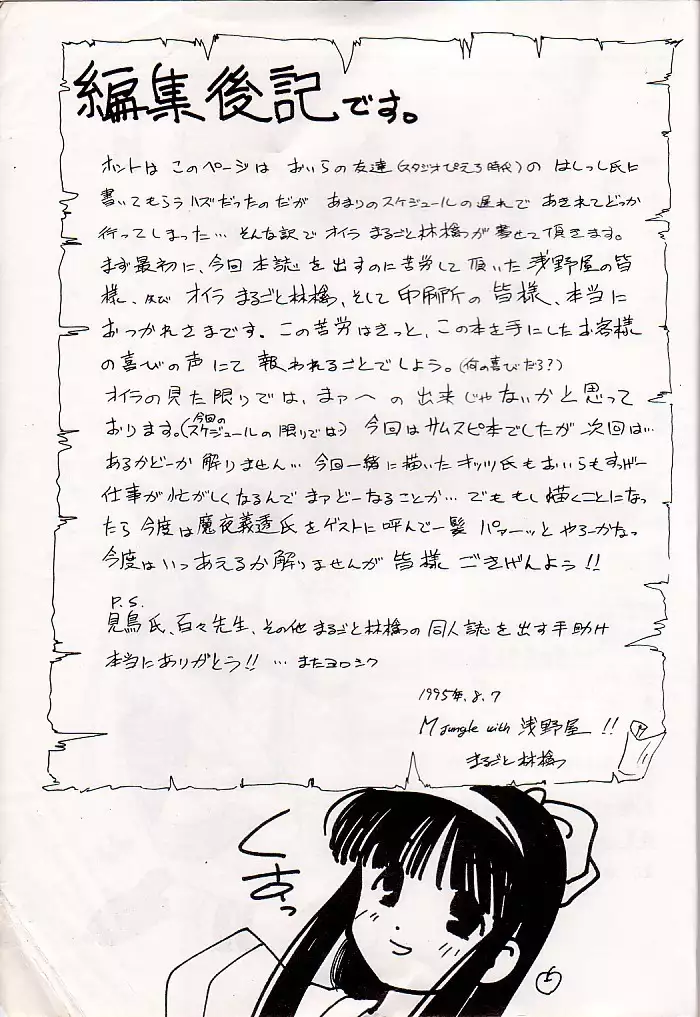 編集後記です。
ホントは このページは おいらの友達(スタジオぴえろ時代)の はしっし氏に
書いてもらうハズだったのだが あまりのスケジュールの遅れで あきれてどっか
行ってしまった… そんな訳で オイラ まるごと林檎っが 書せて頂きます。
まず最初に、今回 本誌 を 出すのに苦労して頂いた 浅野屋の皆
様、及び オイラ まるごと林檎っ、そして 印刷所の 皆様、本当に
おつかれさまです。この苦労はきっと、この本を手にしたお客様
の喜びの声にて 報われることでしよう。(何の喜びだろ?)
オイラの見た限りでは、まァへの 出来じゃないかと思って
おります。(今回のスケジュールの限りでは) 今回はサムスピ本でしたが 次回は…
あるかどーか 解りません… 今回一緒に描いた キッツ氏もおいらもすっげー
仕事が忙がしくなるんで まァどーなることか… でももし描くことになっ
たら 今度は魔夜義透氏をゲストに呼んで一髪 パァーッと やろーかなっ
今度はいつあえるか解りませんが 皆様 ごきげんよう!!
P.S.
見鳥氏、百々先生、その他 まるごと林檎っの 同人誌を出す手助け
本当にありがとう!! … またヨロシク
1995年.8.7
M Jungle with 浅野屋 !!
まるごと林檎っ
くすっ